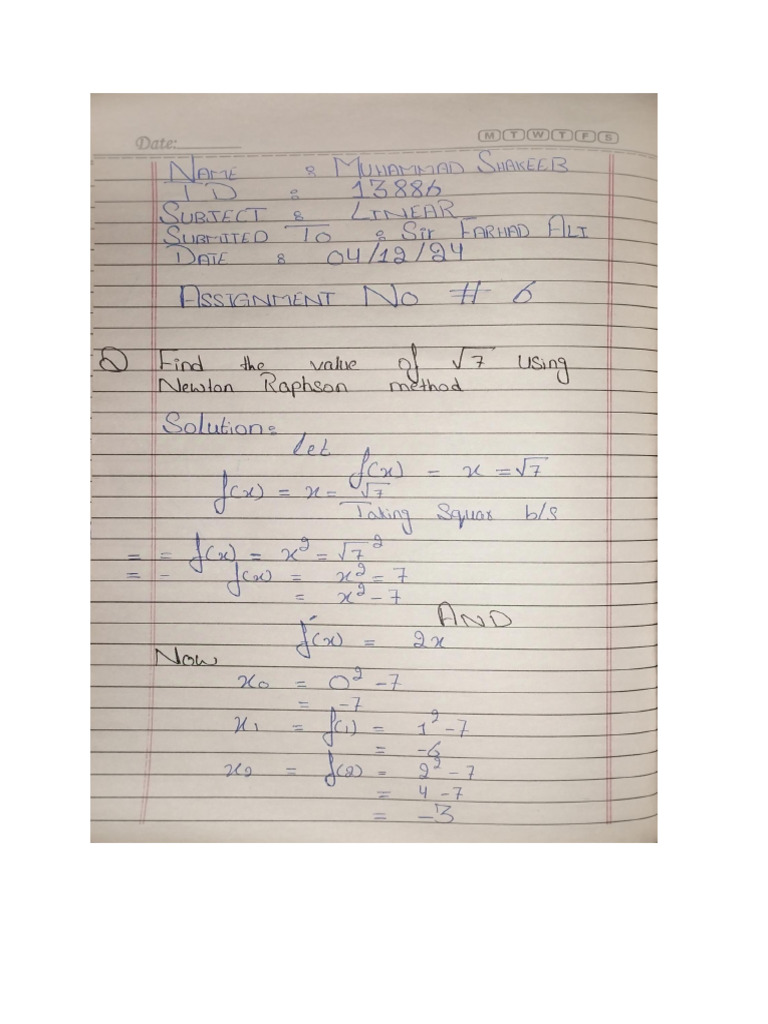 Date:
M T W T F S
NAME : MUHAMMAD SHAKEEB
ID : 13886
SUBJECT : LINEAR
SUBMITED TO : Sir FARHAD ALI
DATE : 04/12/24
ASSIGNMENT NO # 6
Q Find the value of √7 using
Newton Raphson method
Solution:
let
f(x) = x = √7
f(x) = x = √7
Taking Squar b/s
= = f(x) = x² = √7²
= - f(x) = x² = 7
= x² - 7
AND
f′(x) = 2x
Now
x₀ = 0² - 7
= -7
x₁ = f(1) = 1² - 7
= -6
x₂ = f(2) = 2² - 7
= 4 - 7
= -3